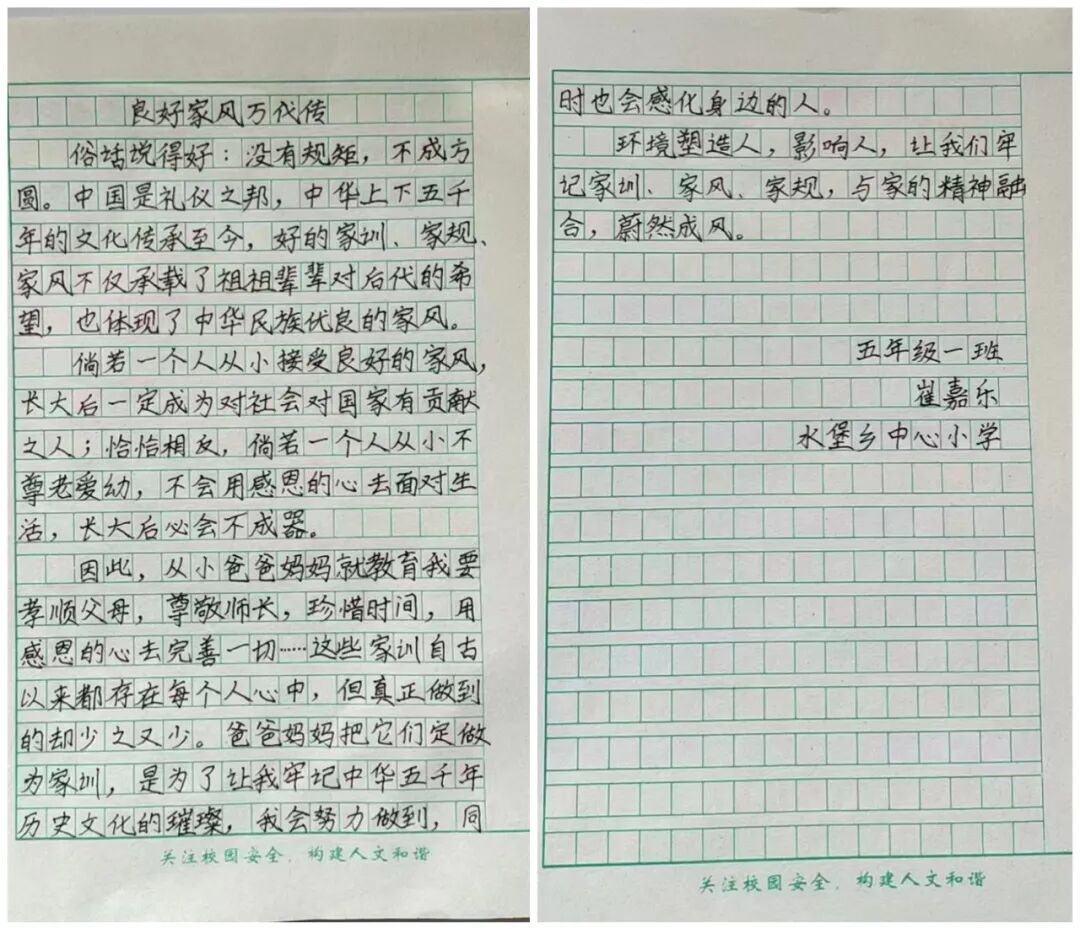 良好家风万代传
俗话说得好：没有规矩，不成方
圆。中国是礼仪之邦，中华上下五千
年的文化传承至今，好的家训、家规、
家风不仅承载了祖祖辈辈对后代的希
望，也体现了中华民族优良的家风。
倘若一个人从小接受良好的家风，
长大后一定成为对社会对国家有贡献
之人；恰恰相反，倘若一个人从小不
尊老爱幼，不会用感恩的心去面对生
活，长大后必会不成器。
因此，从小爸爸妈妈就教育我要
孝顺父母，尊敬师长，珍惜时间，用
感恩的心去完善一切……这些家训自古
以来都存在每个人心中，但真正做到
的却少之又少。爸爸妈妈把它们定做
为家训，是为了让我牢记中华五千年
历史文化的璀璨，我会努力做到，同
关注校园安全，构建人文和谐
时也会感化身边的人。
环境塑造人，影响人，让我们牢
记家训、家风、家规，与家的精神融
合，蔚然成风。
五年级一班
崔嘉乐
水堡乡中心小学
关注校园安全，构建人文和谐